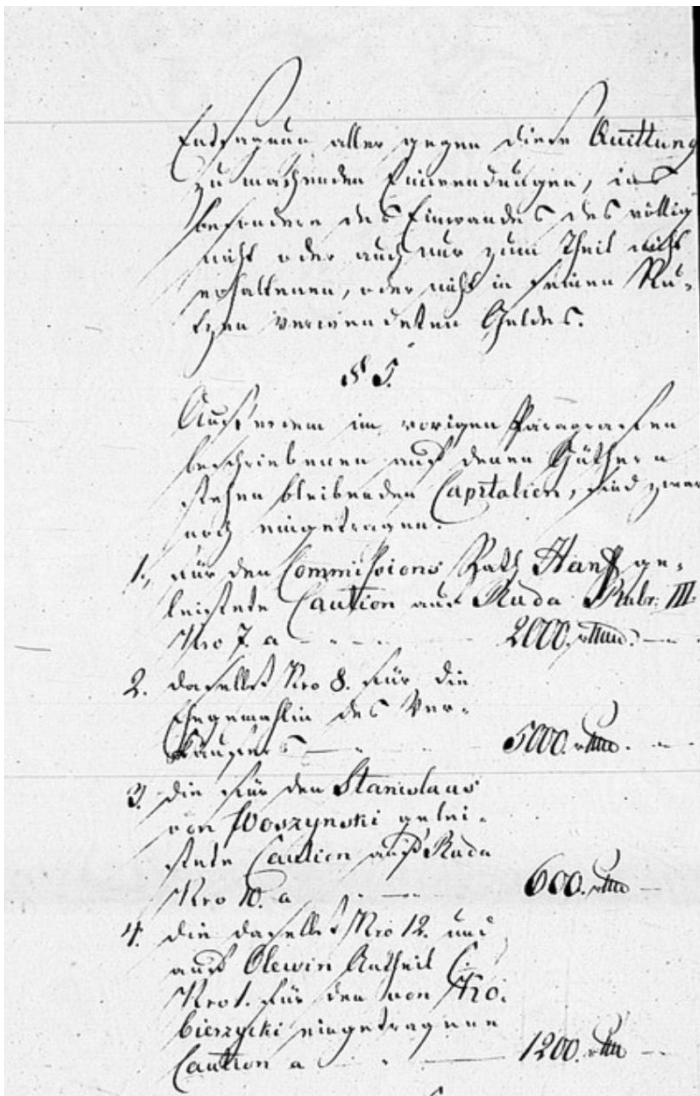 Entsagung aller gegen diese Quittung
zu machenden Einwendungen, ins
besondere des Einwandes des völlig
nicht oder auch nur zum Theil nicht
erhaltenen, oder nicht in seinen Nu-
tzen verwendeten Geldes.
§ 5.
Ausser denen im vorigen Paragraphen
beschriebenen auf denen Güthern
stehen bleibenden Capitalien, sind zwar
noch eingetragen:
1., für den Commissions Rath Hantz ge-
leistete Caution auf Ruda Rubr: III
Nro 7. a 2000. rthlr.
2. daselbst Nro 8. für die
Ehegemahlin des Ver-
käufers 5000. rthlr.
3. die für den Stanislaus
von Woszynski gelei-
stete Caution auf Ruda
Nro 10. a 600. rthlr
4. die daselbst Nro 12. und
auf Olewin Antheil C.
Nro 1. für den von Ko-
bierzycki eingetragene
Caution a 1200. rthlr